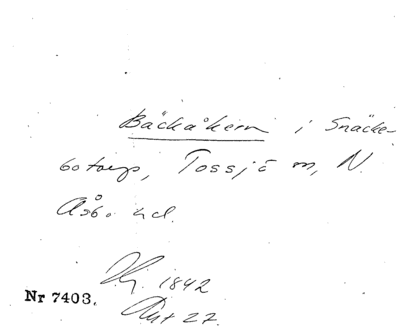 Bäckåkern i Snäcke-
botorp, Tossjö m, N.
Åsbo hd.
1842
Nr 7403.
Akt 27.